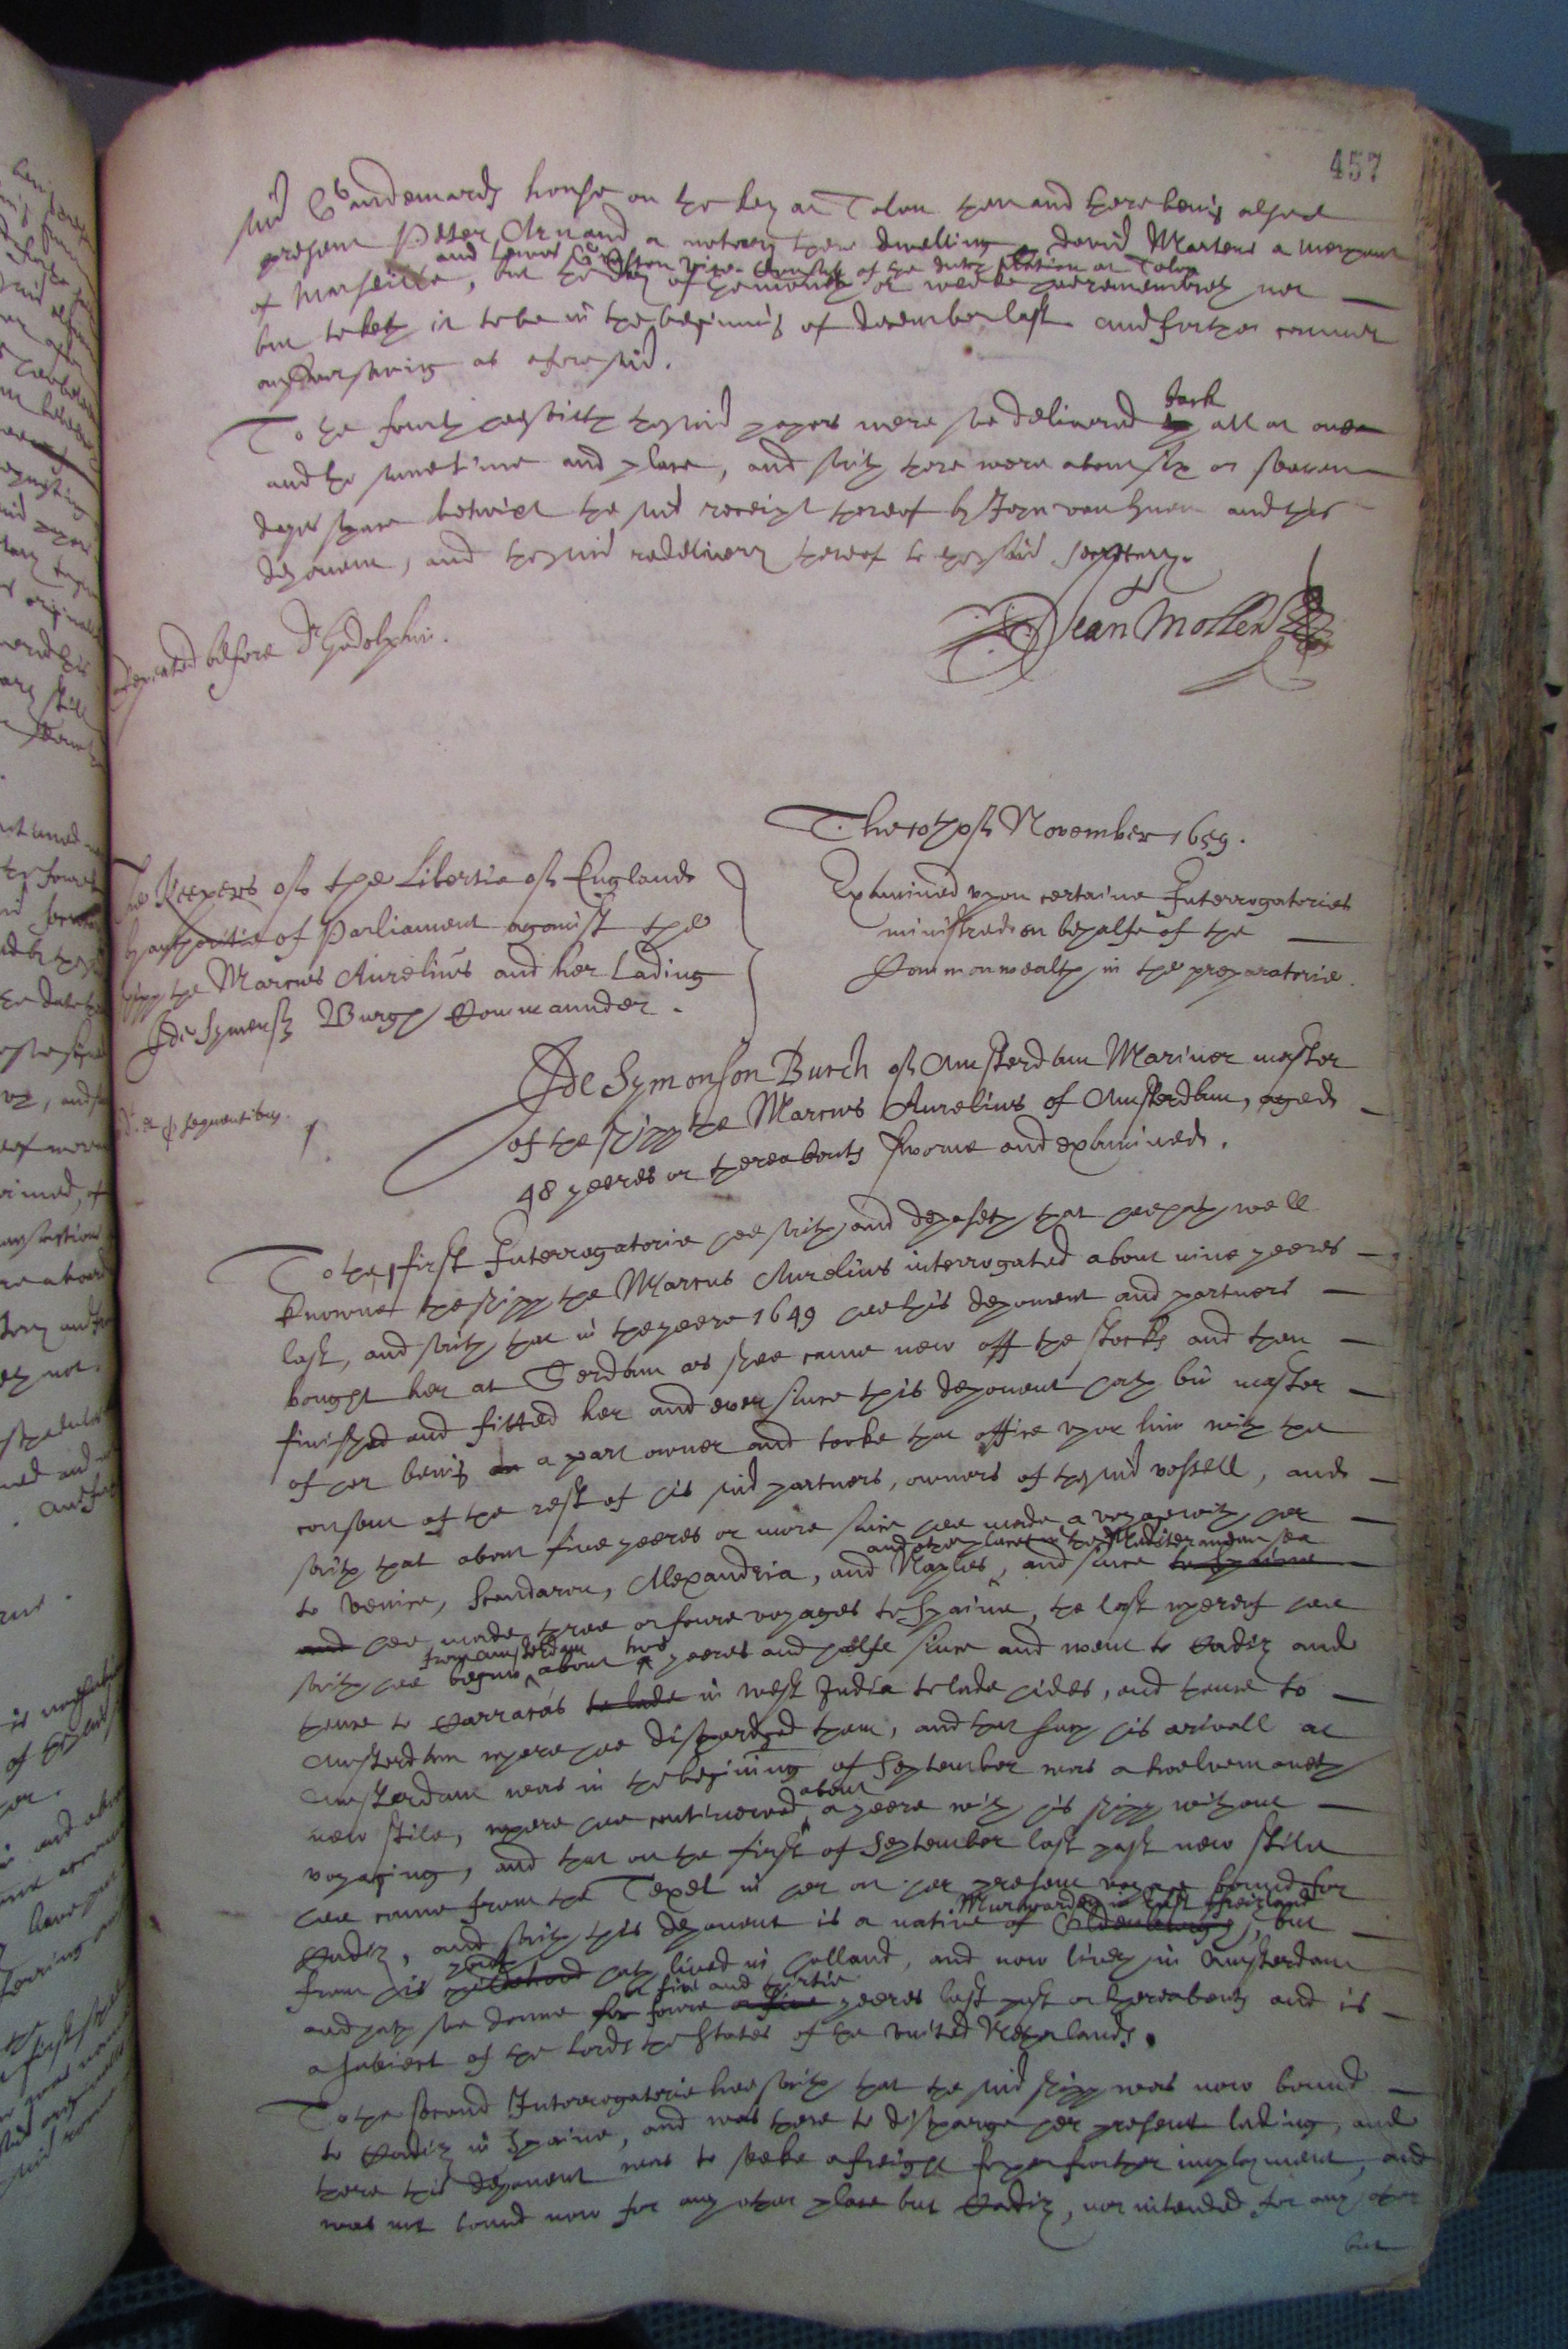 457
said Vandemards house on the key at Tolon then and there being alsoe
present Peter Arnaud a notary there dwelling, David Martens a merchant
and Vice Consull of the dutch Nation at Tolon
of Marseille, but the day of the moneth or weeke hee remembreth not
but taketh it to be in the beginning of December last and further cannot
answer saving as aforesaid.
To the fourth hee saith the said papers were soe delivered back all at once
and the same time and place, and saith there were about six or seaven
dayes space betwixt the said receipt thereof by John van and this
deponent, and the said redelivery thereof to the said secretary.
Jean Mollen
repeated before Dr Godolphin.
The 10th of November 1659.
The Keepers of the Libertie of England
by authoritie of Parliament against the
shipp the Marcus Aurelius and her Lading
Ide Symensz Burgh Commannder.
Examined upon certaine Interrogatories
ministred on behalfe of the
Commonwealth in the preparatorie.
sequentibus.
1.
Ide Symonson Burch of Amsterdam Mariner master
of the shipp the Marcus Aurelius of Amsterdam, aged
48 yeeres or thereabouts sworne and examined.
To the first Interrogatorie hee saith and deposeth that hee hath well
knowne the shipp the Marcus Aurelius interrogated about nine yeeres
last, and saith that in the yeere 1649 hee this deponent and partners
bought her at Serdam as shee came new off the stocks and then
finished and fitted her and ever since this deponent hath bin master
of her being a part owner and tooke that office upon him with the
consent of the rest of his said partners, owners of the said vessell, and
saith that about five yeeres or more since hee made a voyage with her
and other places in the Mediterranean sea
to Venice, Scandaron, Alexandria, and Naples, and since to Spaine
and hee made three or foure voyages to Spaine, the last whereof hee
from Amsterdam two
saith hee begun about yeeres and halfe since and went to Cadiz and
thence to Carracas to lade in West India to lade hides, and thence to
Amsterdam where hee discharged them, and that such his arivall at
Amsterdam was in the begining of September was a twelvemoneth
about
new stile, where hee continewed a yeere with his shipp without
voyaging, and that on the first of September last past new stile
hee came from the Texel in her on her present voyage bound for
in East freizland
Cadiz, and saith this deponent is a native of Oldenburgh, but
youth
from his childhood hath lived in Holland, and now liveth in Amsterdam
five and thirtie
and hath soe donne for foure or five yeeres last past or thereabouts and is
a subiect of the Lords the States of the United Netherlands.
To the second Interrogatorie hee saith that the said shipp was now bound
to Cadiz in Spaine, and was there to discharge her present lading, and
there this deponent was to seeke a freight for her further imployment, and
was not bound now for any other place but Cadiz, nor intended for any other
but